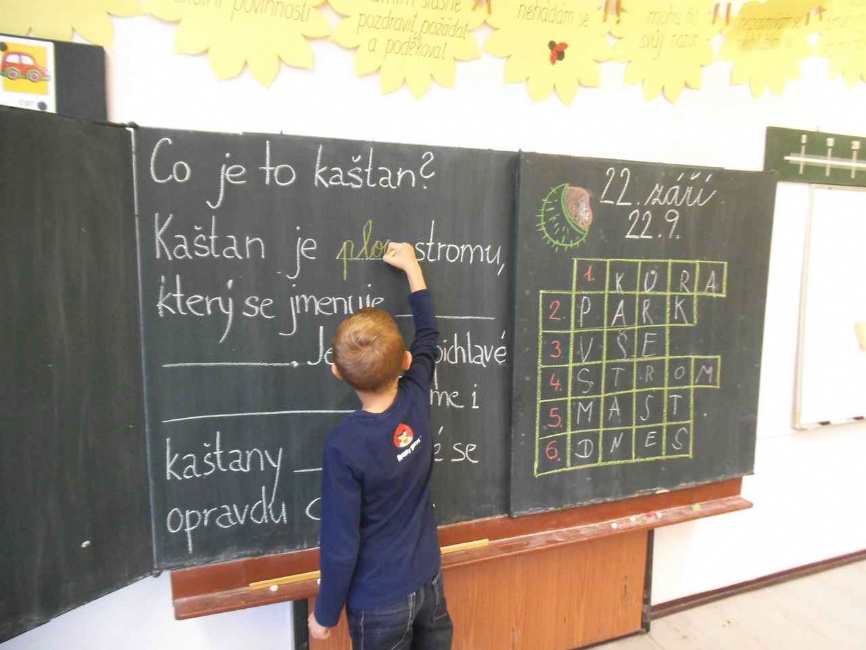 povinnosti
slušně
pozdravit, požádat
a poděkovat
nehádám se
svůj názor
Co je to kaštan?
Kaštan je plo stromu,
který se jmenuje
. Je pichlavé
me i
kaštany é se
opravdu
22. září
22.9.
1. KŮRA
2. PARK
3. VŠE
4. STROM
5. MAST
6. DNES
0 10 20